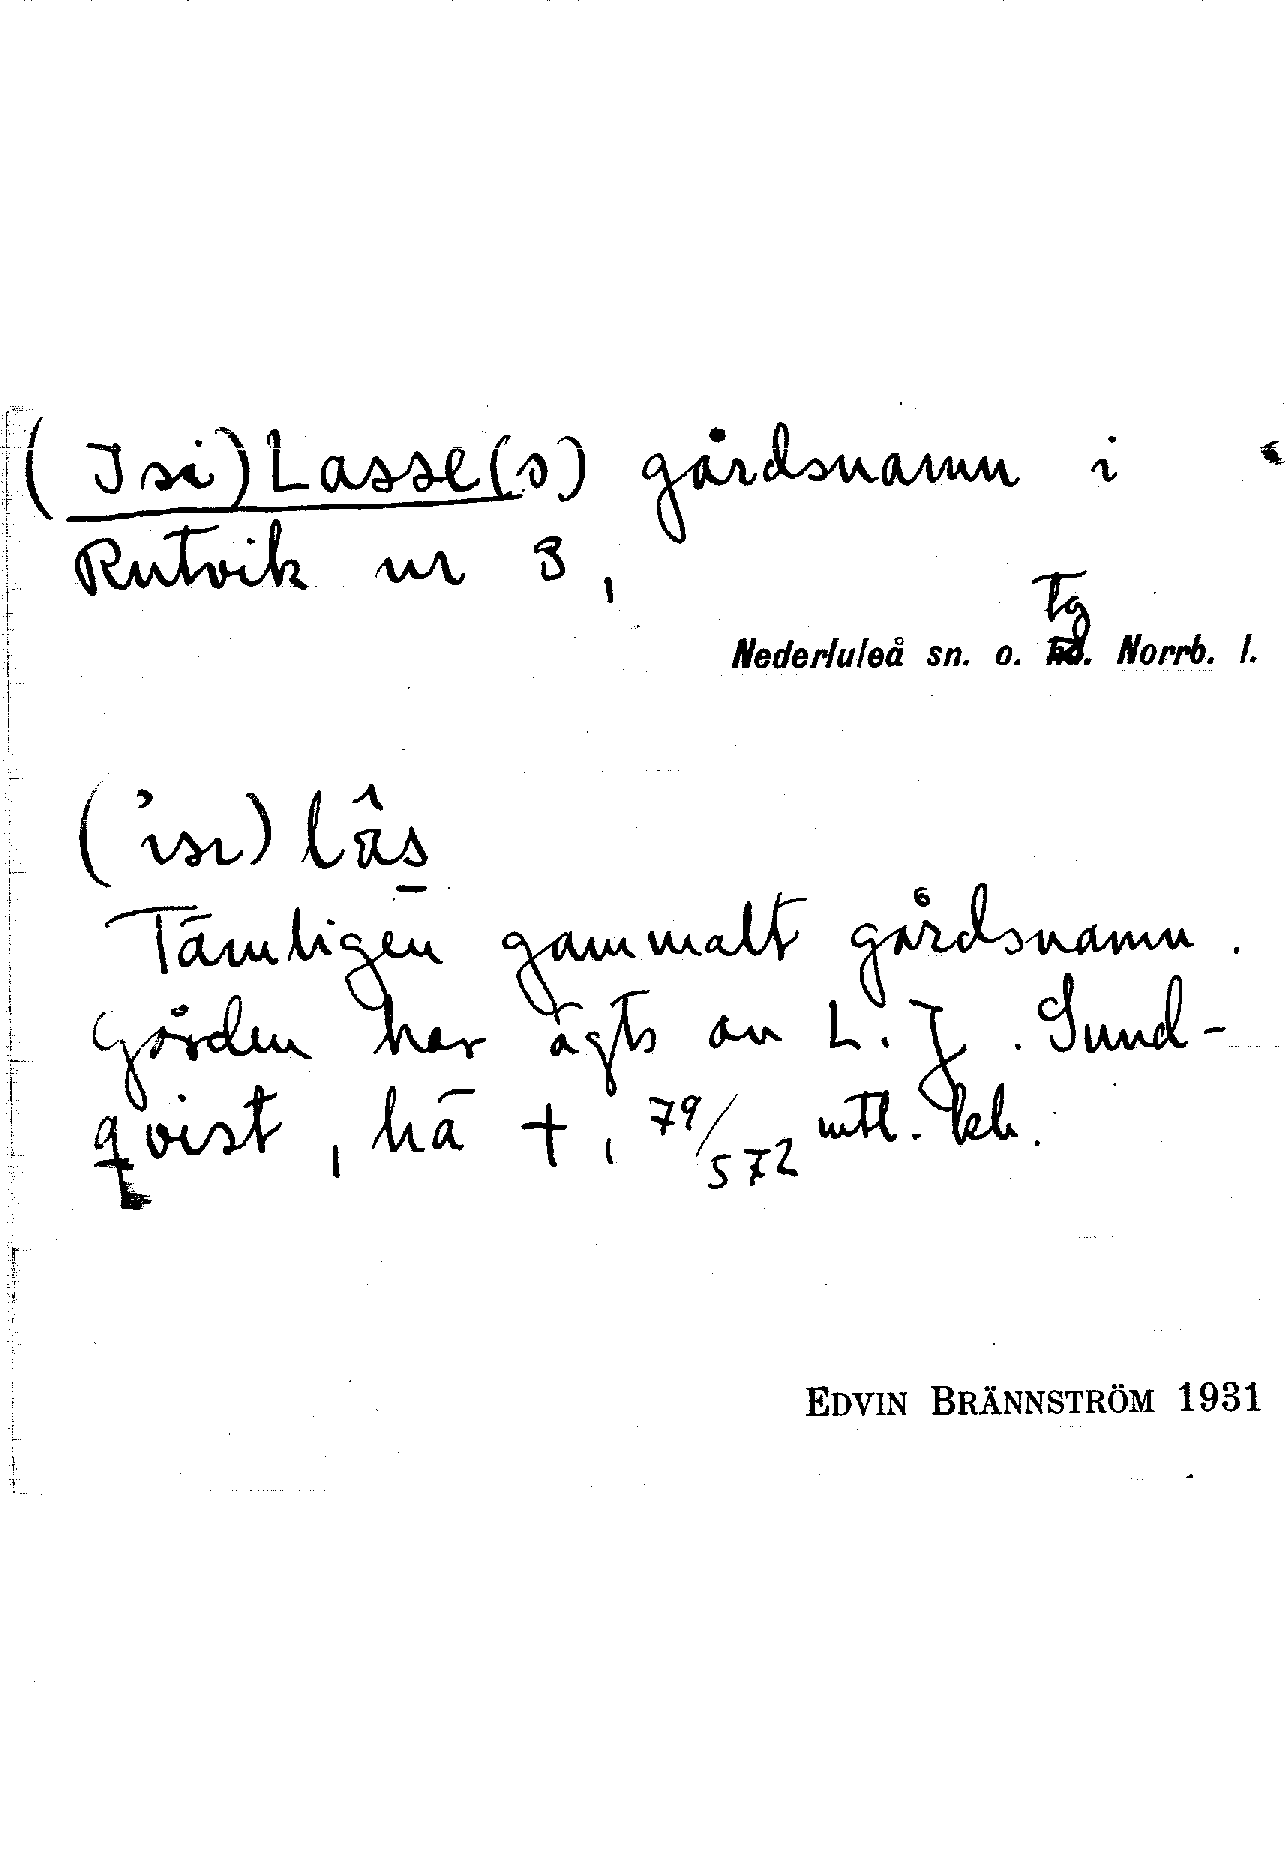 (Isi)Lasse(s) gårdsnamn i
Rutvik nr 3,
tg
Nederluleå sn. o. hd. Norrb. l.
('isı) lâs
Tämligen gammalt gårdsnamn.
Gården har ägts av L. J. Sund-
qvist, hä +, 79/572 mtl. kh.
EDVIN BRÄNNSTRÖM 1931